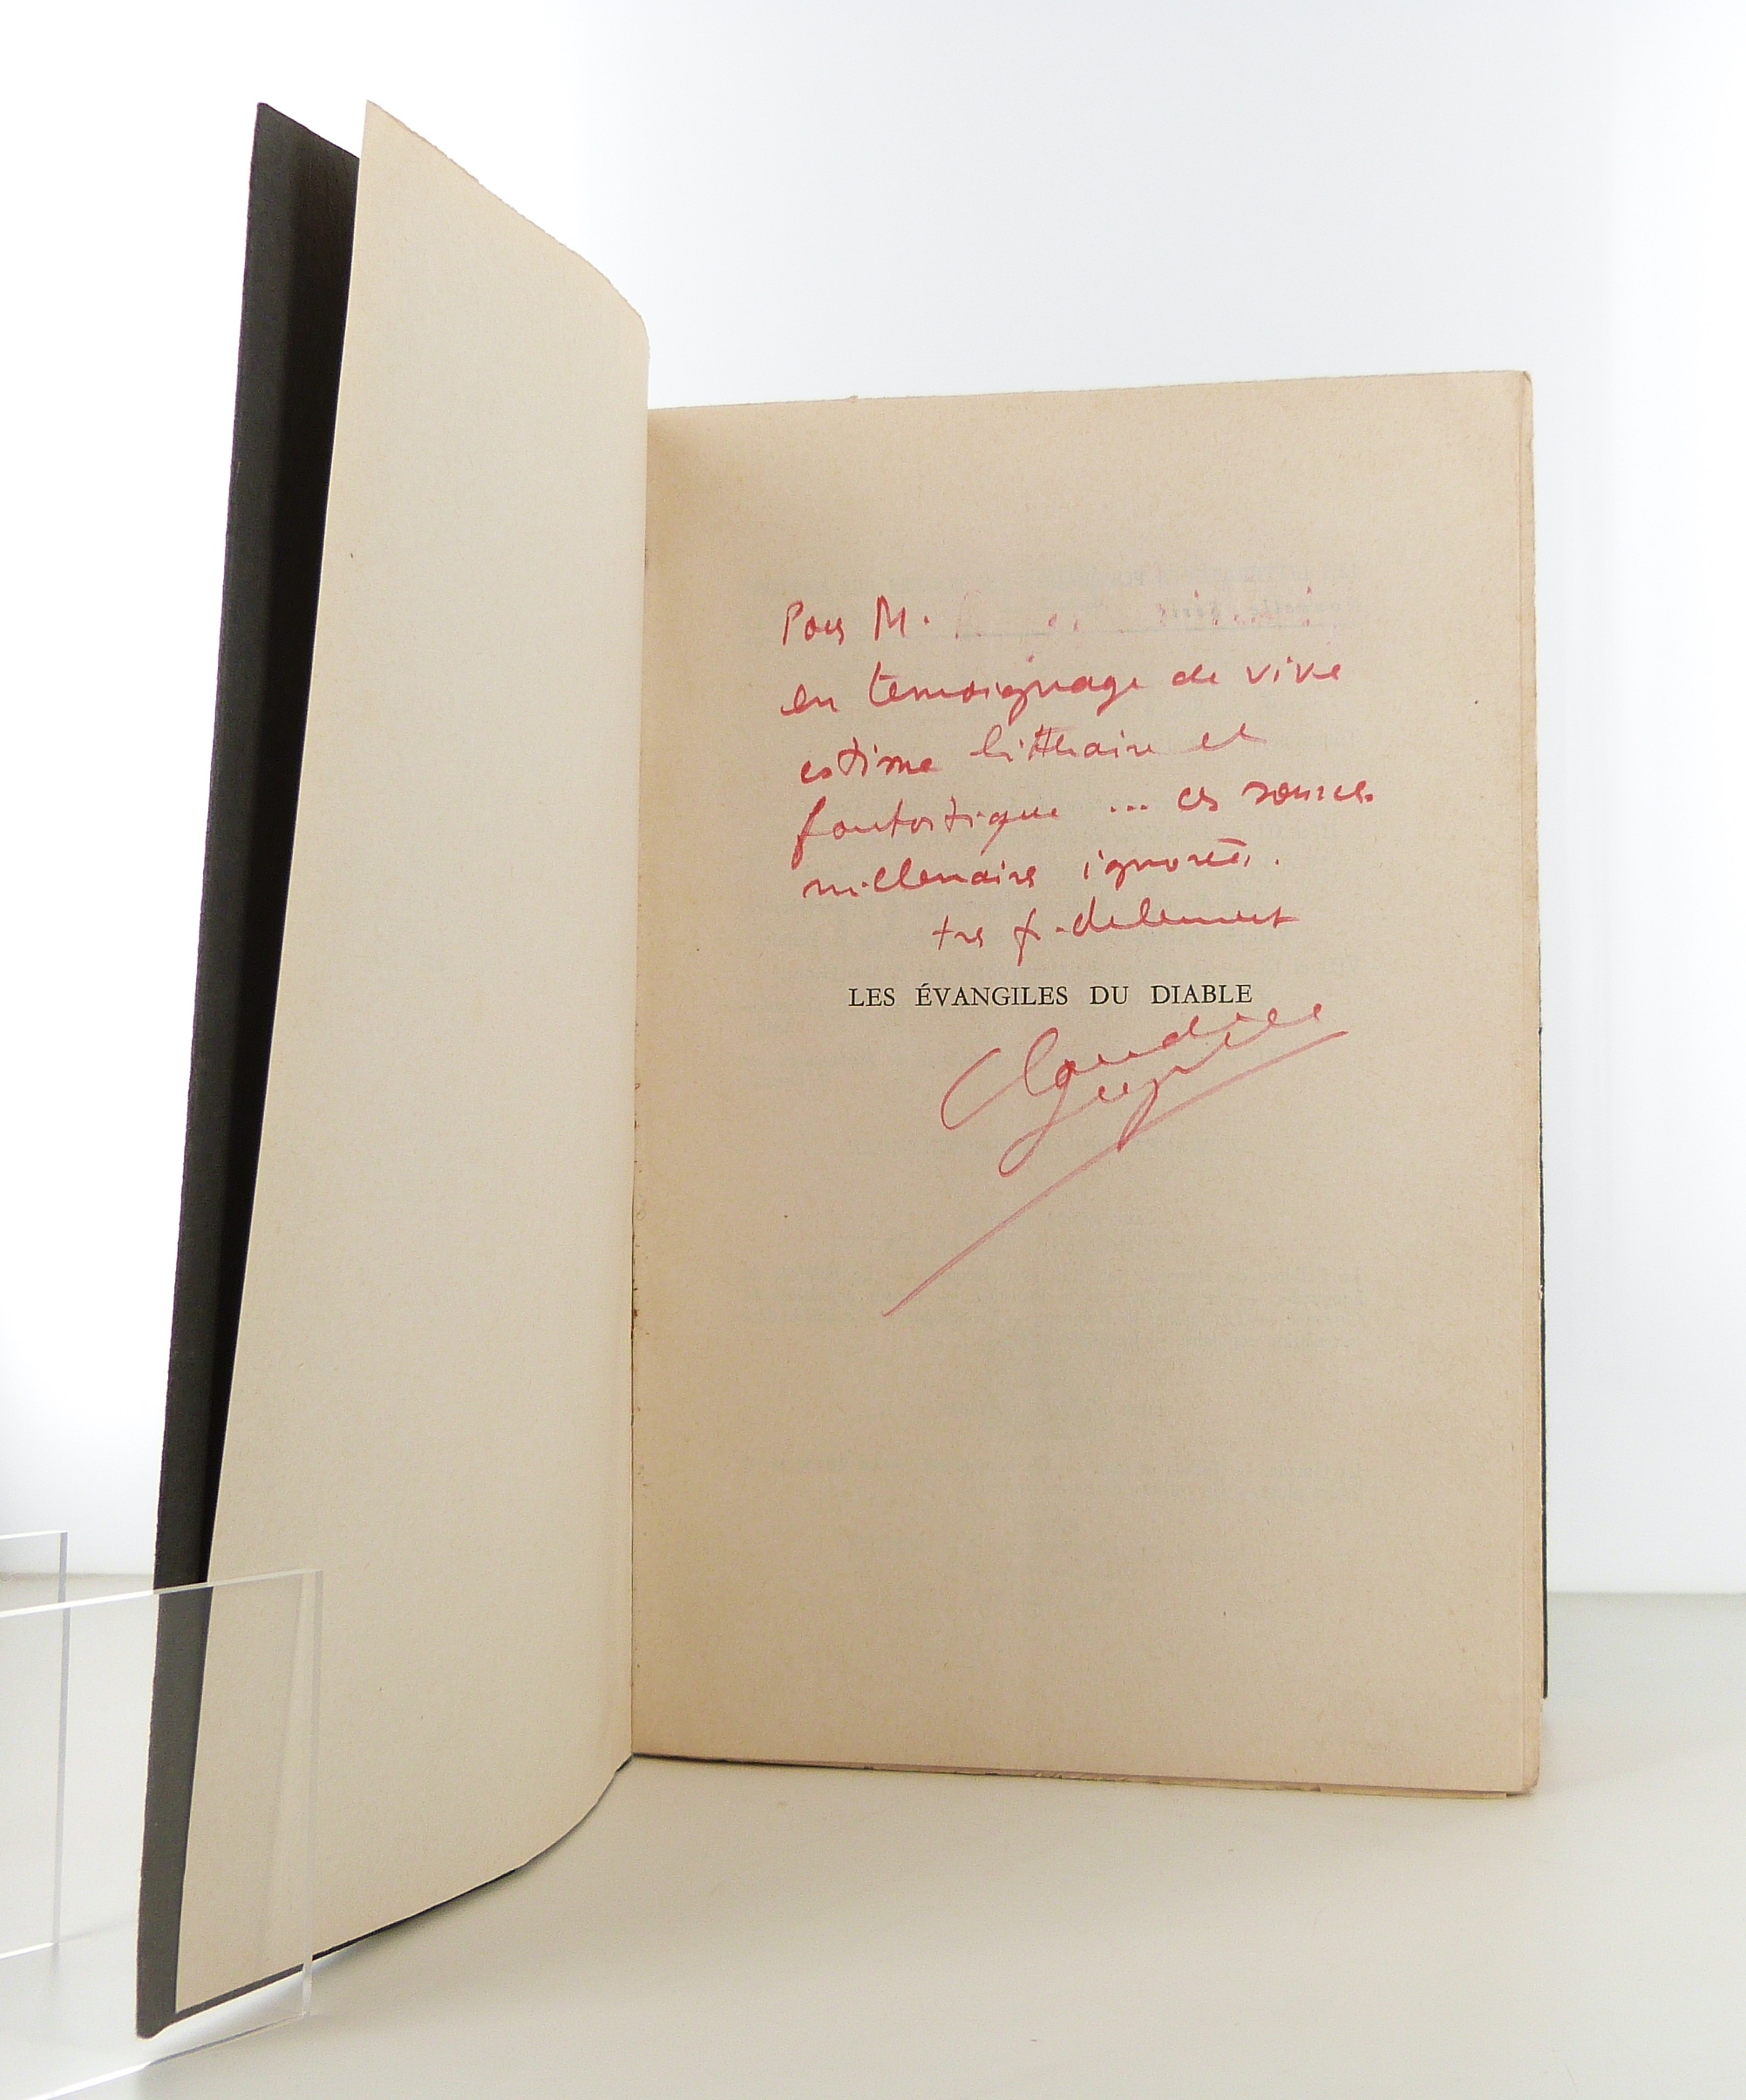 Pour M.
en temoignage de vive
estime littéraire et
fantastique ... ces sources
millenaires ignorées.
très fidelement
LES ÉVANGILES DU DIABLE
Claude
Seignolle